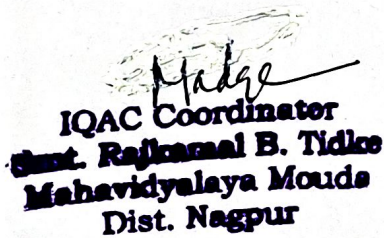 Madge
IQAC Coordinator
Smt. Rajkamal B. Tidke
Mahavidyalaya Mouda
Dist. Nagpur